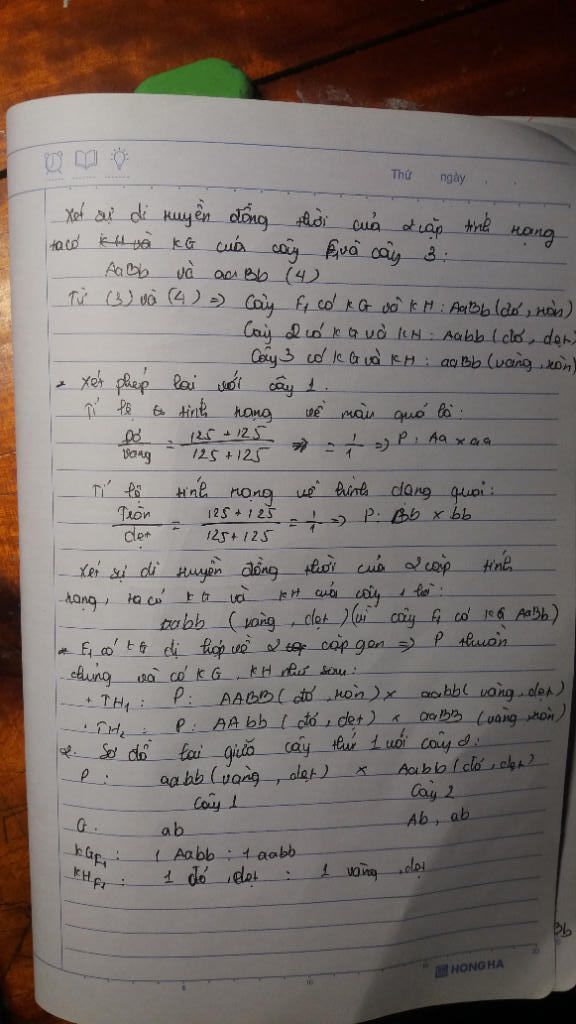 Thứ ngày
Xét sự di truyền đồng thời của 2 cặp tính trạng
ta có KG của cây F₁ và cây 3:
AaBb và aaBb (4)
Từ (3) và (4) => Cây F₁ có KG và KH: AaBb (đỏ, tròn)
Cây 2 có KG và KH: Aabb (đỏ, dẹt)
Cây 3 có KG và KH: aaBb (vàng, tròn)
* Xét phép lai với cây 1.
Tỉ lệ tính trạng về màu quả là:
Đỏ/vàng = 125 + 125/125 + 125 = 1/1 => P: Aa x aa
Tỉ lệ tính trạng về hình dạng quả:
Tròn/dẹt = 125 + 125/125 + 125 = 1/1 => P: Bb x bb
Xét sự di truyền đồng thời của 2 cặp tính
trạng, ta có KG và KH của cây 1 là:
aabb (vàng, dẹt) (vì cây F₁ có KG AaBb)
* F₁ có KG dị hợp về 2 cặp gen => P thuần
chủng và có KG, KH như sau:
+ TH₁: P: AABB (đỏ, tròn) x aabb (vàng, dẹt)
+ TH₂: P: AAbb (đỏ, dẹt) x aaBB (vàng, tròn)
2. Sơ đồ lai giữa cây thứ 1 với cây 2:
P: aabb (vàng, dẹt) x Aabb (đỏ, dẹt)
Cây 1 Cây 2
G: ab Ab, ab
KG F₁: 1 Aabb : 1 aabb
KH F₁: 1 đỏ, dẹt : 1 vàng, dẹt
Bb
HONG HA